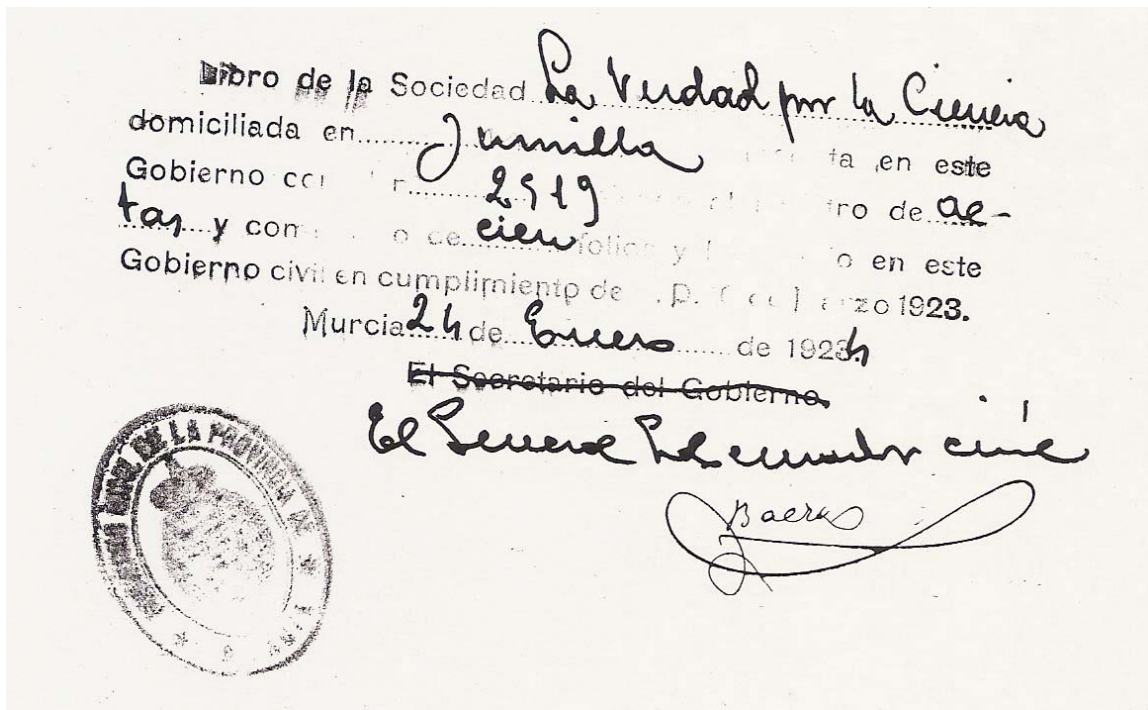 Libro de la Sociedad La Verdad por la Ciencia
domiciliada en Jumilla ta en este
Gobierno 2519 tro de ac-
tas y con o de cien folios y o en este
Gobierno civil en cumplimiento de 1923.
Murcia 24 de Enero de 1924
El Secretario del Gobierno.
El General Gobernador civil
Baeza
CIVIL DE LA PROVINCIA DE